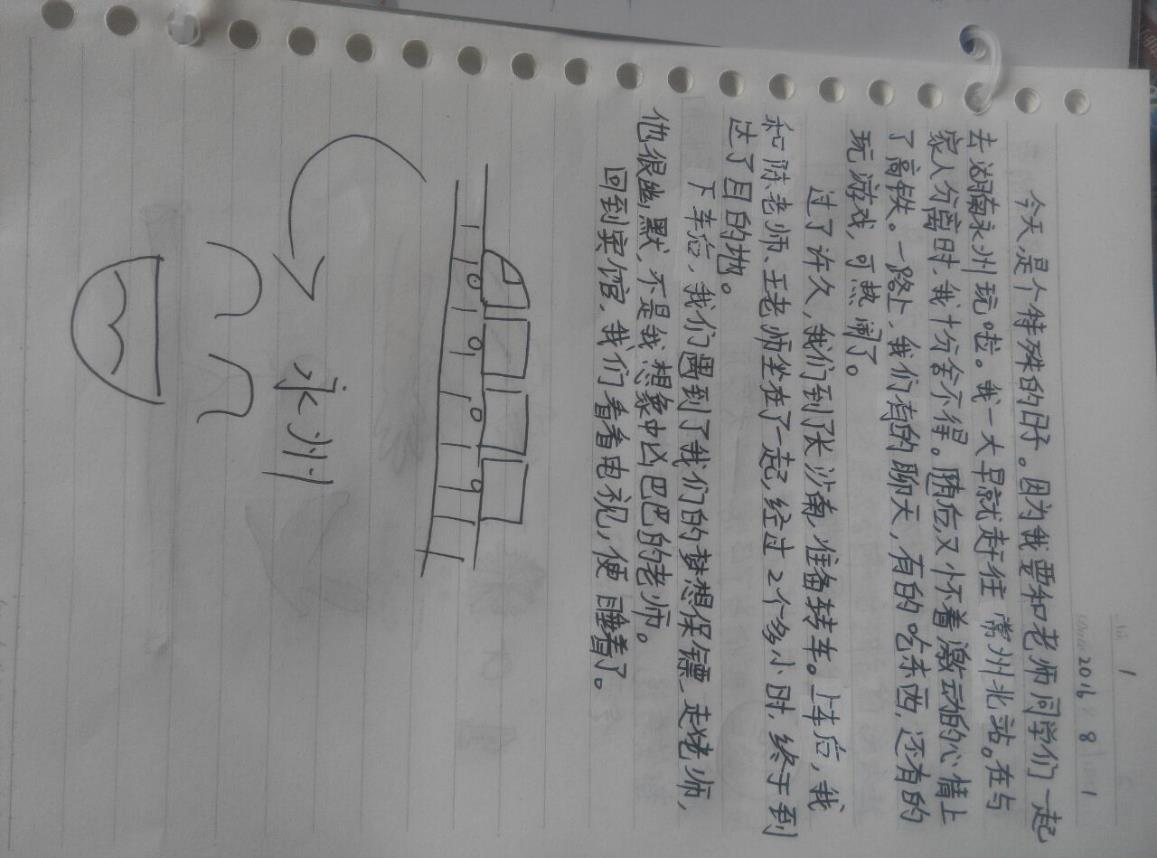 1
2016 8 1
今天,是个特殊的日子。因为我要和老师同学们一起
去湖南永州玩啦。我一大早就赶往常州北站。在与
家人分离时,我十分舍不得。随后又小怀着激动的心情上
了高铁。一路上,我们有的聊天,有的吃东西,还有的
玩游戏,可热闹了。
过了许久,我们到了长沙南,准备转车。上车后,我
和陈老师、王老师坐在了一起,经过2个多小时,终于到
过了目的地。
下车后,我们遇到了我们的梦想保镖,老师,
他很幽默,不是我想象中凶巴巴的老师。
回到宾馆,我们看看电视,便睡着了。
永州